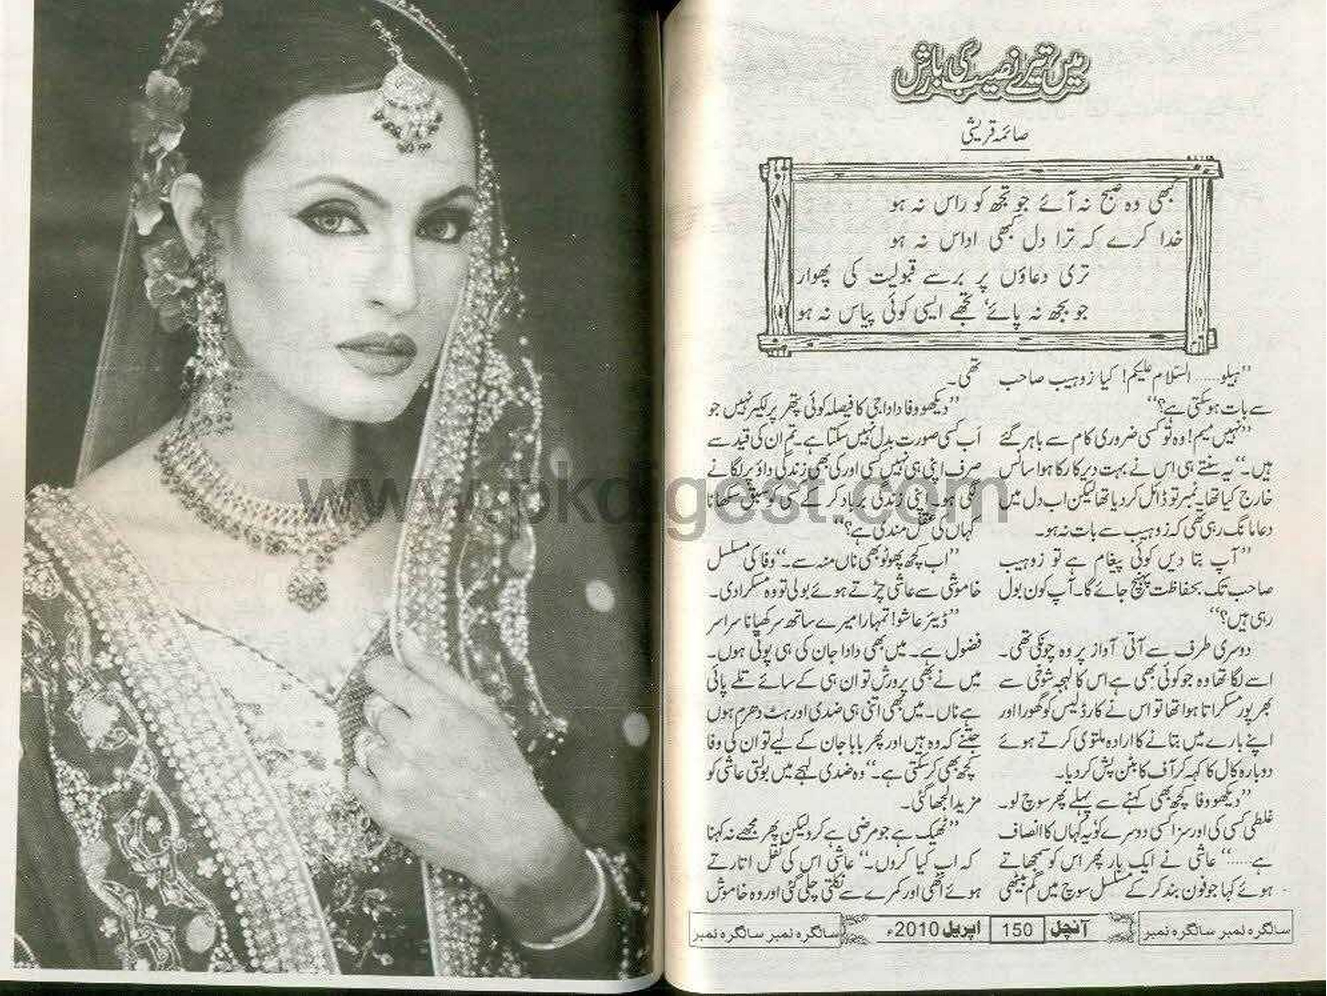 میں تیرے نصیب کی بارش
صائمہ قریشی
کبھی وہ صبح نہ آئے جو تجھ کو راس نہ ہو
خدا کرے کہ ترا دل کبھی اداس نہ ہو
تری دعاؤں پر برسے قبولیت کی پھوار
جو بجھ نہ پائے، تجھے ایسی کوئی پیاس نہ ہو
”ہیلو..... السّلام علیکم! کیا زوہیب صاحب
سے بات ہوسکتی ہے؟“
”نہیں میم! وہ تو کسی ضروری کام سے باہر گئے
ہیں۔“ یہ سنتے ہی اس نے بہت دیر کا رکا ہوا سانس
خارج کیا تھا۔ نمبر تو ڈائل کردیا تھا لیکن اب دل میں
دعا مانگ رہی تھی کہ زوہیب سے بات نہ ہو۔
”آپ بتا دیں کوئی پیغام ہے تو زوہیب
صاحب تک بحفاظت پہنچ جائے گا۔ آپ کون بول
رہی ہیں؟“
دوسری طرف سے آتی آواز پر وہ چونکی تھی۔
اسے لگا تھا وہ جو کوئی بھی ہے اس کا لہجہ شوخی سے
بھرپور مسکراتا ہوا تھا تو اس نے کارڈلیس کو گھورا اور
اپنے بارے میں بتانے کا ارادہ ملتوی کرتے ہوئے
دوبارہ کال کا کہہ کر آف کا بٹن پش کردیا۔
”دیکھو وفا کچھ بھی کہنے سے پہلے پھر سوچ لو۔
غلطی کسی کی اور سزا کسی دوسرے کو یہ کہاں کا انصاف
ہے.....“ عاشی نے ایک بار پھر اس کو سمجھاتے
ہوئے کہا جو فون بند کرکے مسلسل سوچ میں گم بیٹھی
تھی۔
”دیکھو وفا دادا جی کا فیصلہ کوئی پتھر پر لکیر نہیں جو
اب کسی صورت بدل نہیں سکتا ہے۔ تم ان کی قید سے
صرف اپنی ہی نہیں کسی اور کی بھی زندگی داؤ پر لگانے
لگی ہو۔ اپنی زندگی برباد کرکے کسی کو سبق سکھانا
کہاں کی عقل مندی ہے؟“
”اب کچھ پھوٹو بھی ناں منہ سے۔“ وفا کی مسلسل
خاموشی سے عاشی چڑتے ہوئے بولی تو وہ مسکرادی۔
”ڈیئر عاشو! تمہارا میرے ساتھ سر کھپانا سراسر
فضول ہے۔ میں بھی دادا جان کی ہی پوتی ہوں۔
میں نے بھی پرورش تو ان ہی کے سائے تلے پائی
ہے ناں۔ میں بھی اتنی ہی ضدی اور ہٹ دھرم ہوں
جتنے کہ وہ ہیں اور پھر بابا جان کے لیے تو ان کی وفا
کچھ بھی کرسکتی ہے۔“ وہ ضدی لہجے میں بولتی عاشی کو
مزید الجھا گئی۔
”ٹھیک ہے جو مرضی ہے کرو لیکن پھر مجھے نہ کہنا
کہ اب کیا کروں۔“ عاشی اس کی نقل اتارتے
ہوئے اٹھی اور کمرے سے نکلتی چلی گئی اور وہ خاموش
سالگرہ نمبر سالگرہ نمبر آنچل 150 اپریل 2010ء سالگرہ نمبر سالگرہ نمبر
www.pkdigest.com